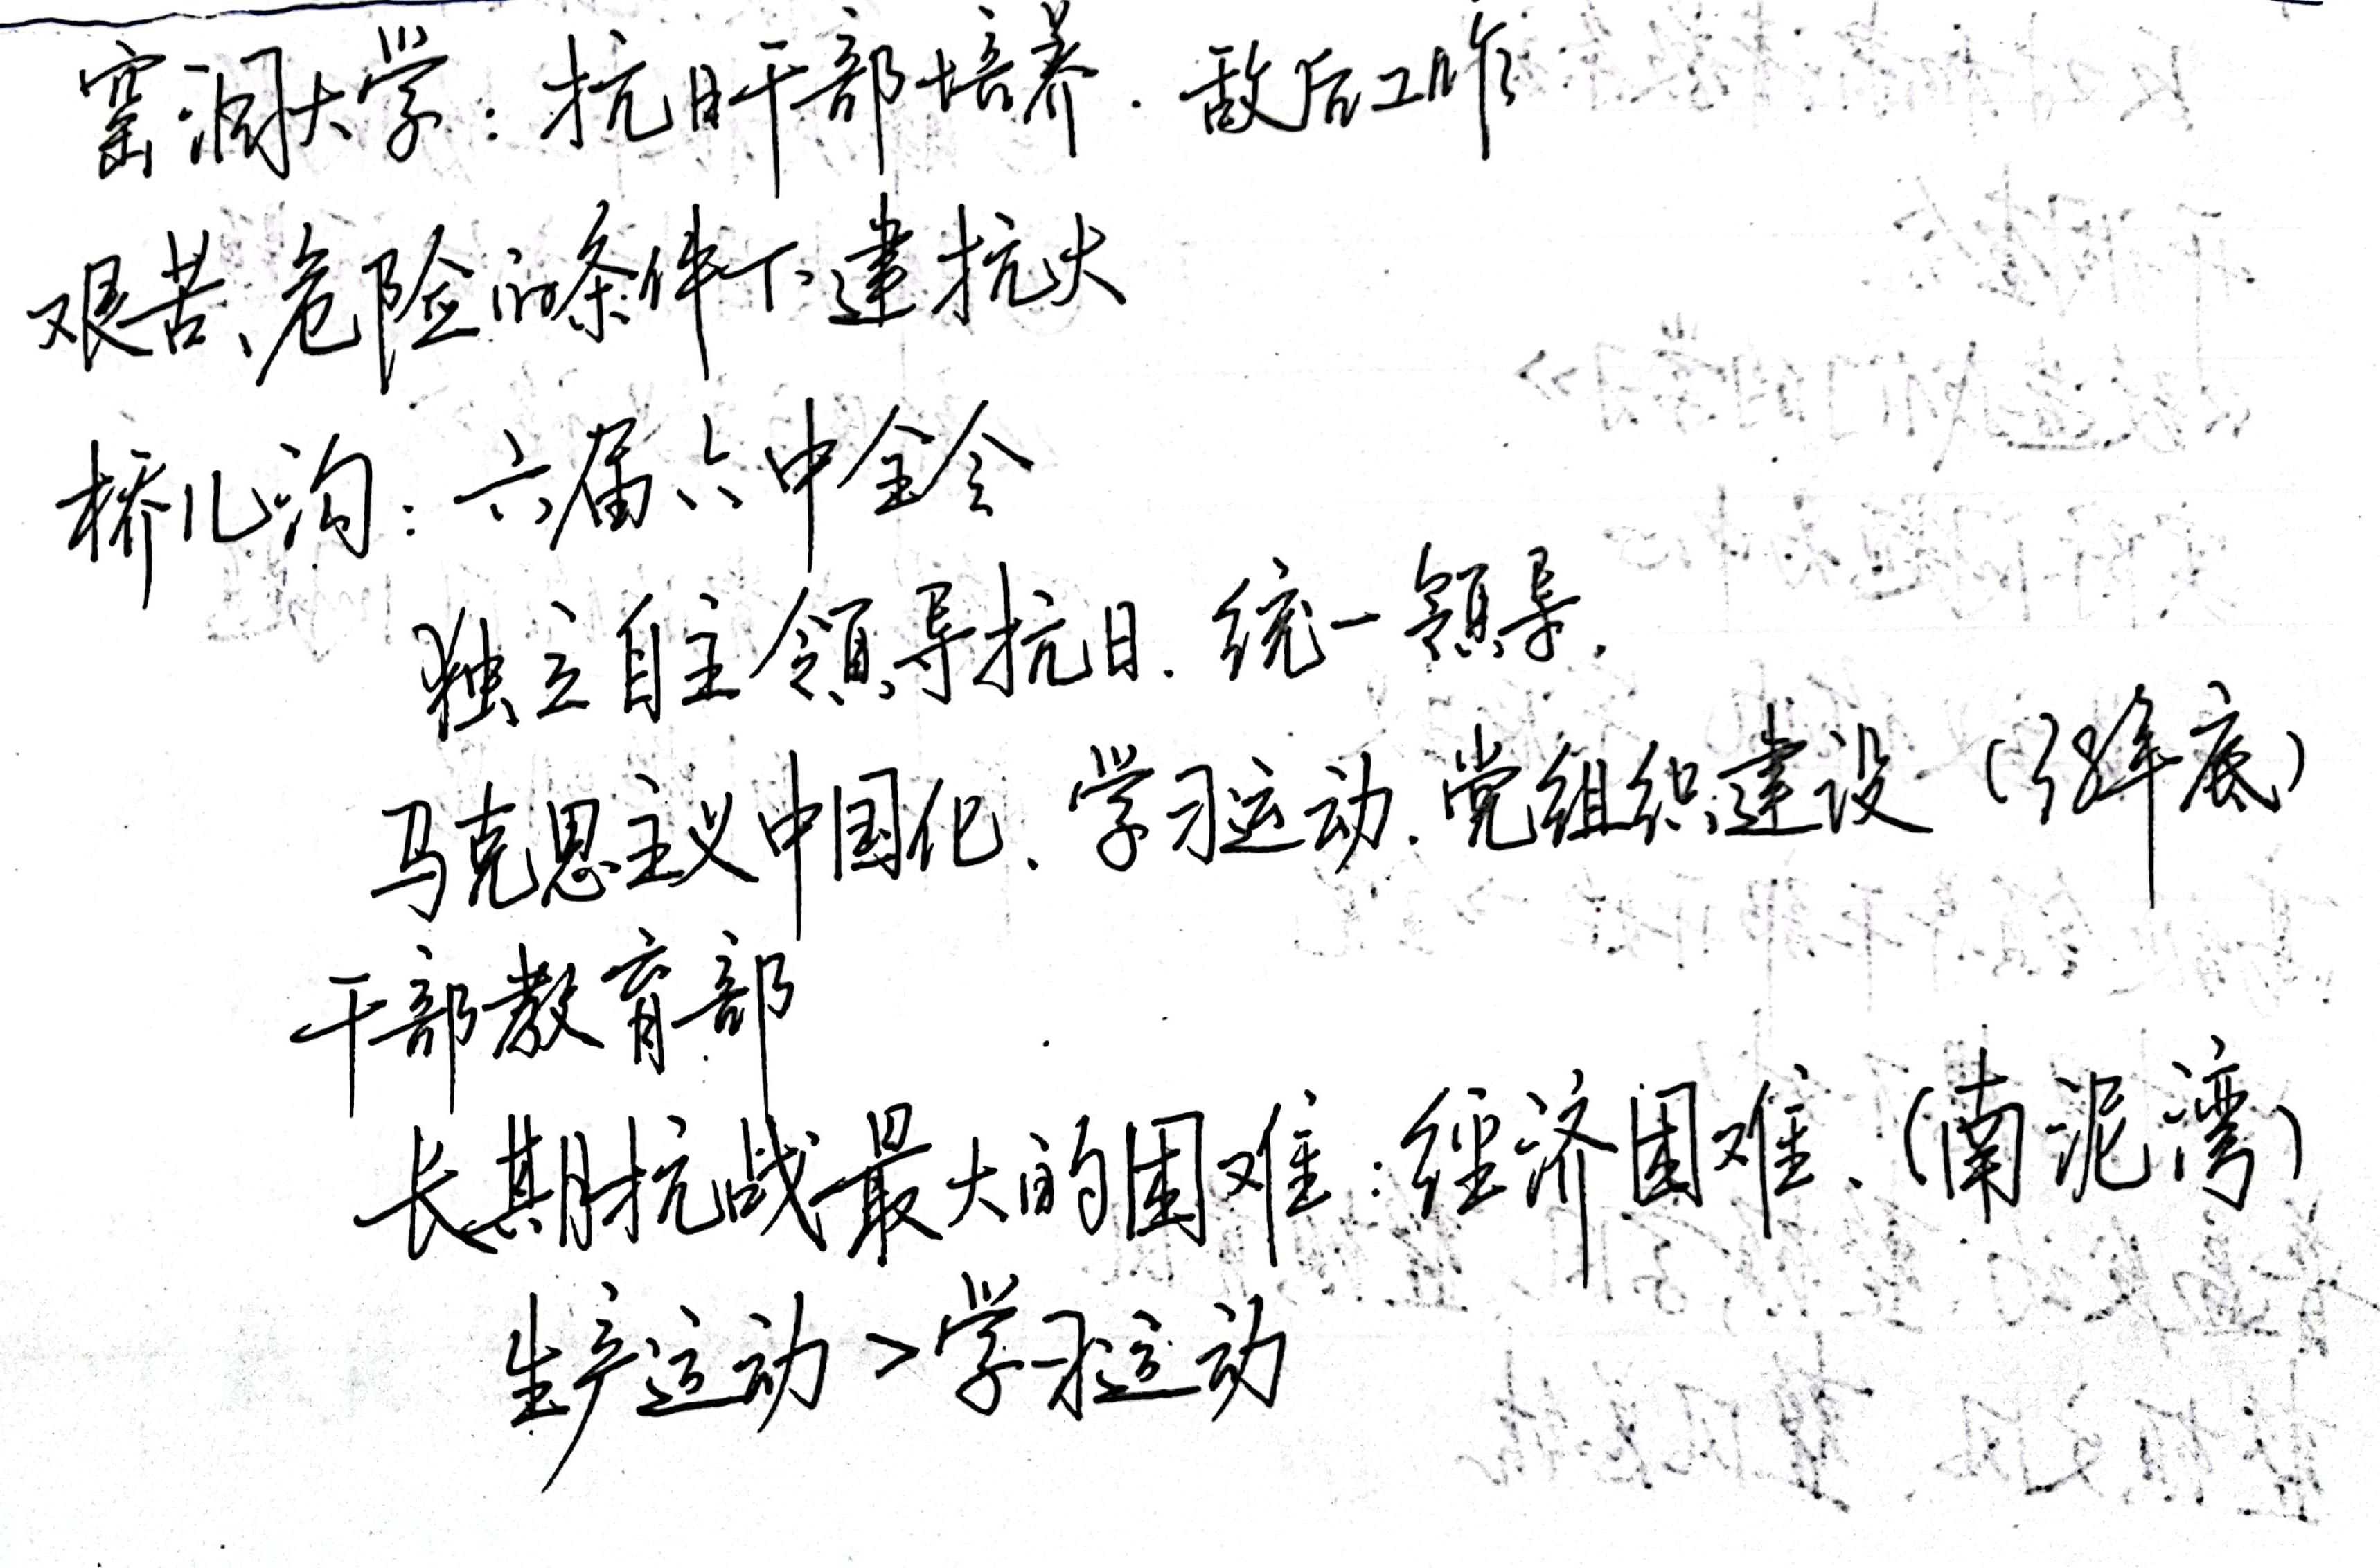 窑洞大学：抗日干部培养．敌后工作
艰苦、危险的条件下建抗大
桥儿沟：六届六中全会
独立自主领导抗日．统一领导．
马克思主义中国化、学习运动．党组织建设（38年底）
干部教育部
长期抗战最大的困难：经济困难、（南泥湾）
生产运动>学习运动